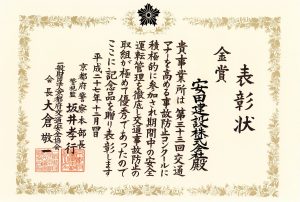 表彰状
金賞
安田建設株式会社殿
貴事業所は第三十三回交通
マナーを高める事故防止コンクールに
積極的に参加され期間中の安全
運転管理を徹底し交通事故防止の
取組が極めて優秀であったので
ここに記念品を贈り表彰します
平成二十七年十二月四日
京都府警察本部長
警視監 坂井孝行
一般財団法人京都府交通安全協会
会長 大倉敬一